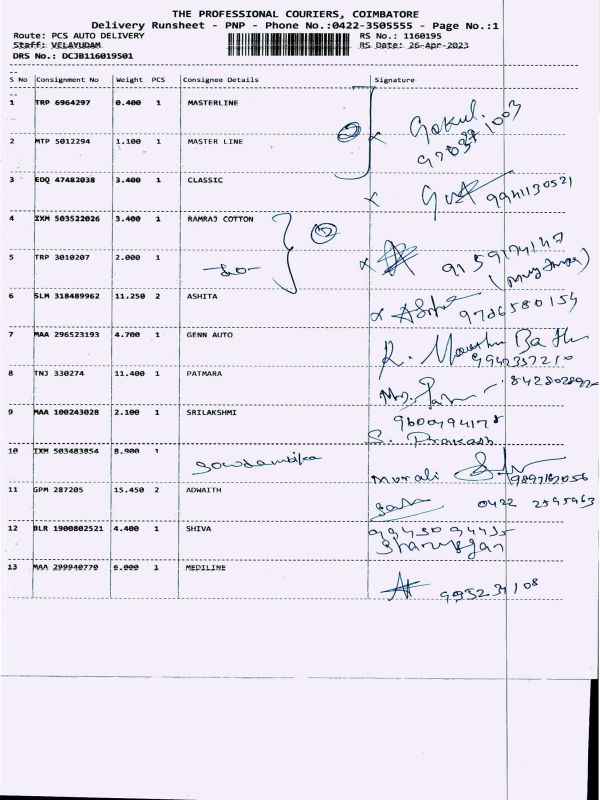 THE PROFESSIONAL COURIERS, COIMBATORE
Delivery Runsheet - PNP - Phone No.:0422-3505555 - Page No.:1
Route: PCS AUTO DELIVERY RS No.: 1160195
Staff: VELAYUDAM RS Date: 26-Apr-2023
DRS No.: DCJB116019501
S No Consignment No Weight PCS Consignee Details Signature
1 TRP 6964297 0.400 1 MASTERLINE Gokul.
2 MTP 5012294 1.100 1 MASTER LINE
3 EDQ 47482038 3.400 1 CLASSIC 9941130521
4 IXM 503522026 3.400 1 RAMRAJ COTTON
5 TRP 3010207 2.000 1 -do- 9159174147
6 SLM 318489962 11.250 2 ASHITA 9786580154
7 MAA 296523193 4.700 1 GENN AUTO 9942357210
8 TNJ 330274 11.400 1 PATMARA
9 MAA 100243028 2.100 1 SRILAKSHMI
S. Prakash
10 IXM 503483854 8.900 1 Gowdambika
Murali
11 GPM 287205 15.450 2 ADWAITH 0422 2595963
12 BLR 1900802521 4.400 1 SHIVA
13 MAA 299940770 6.000 1 MEDILINE